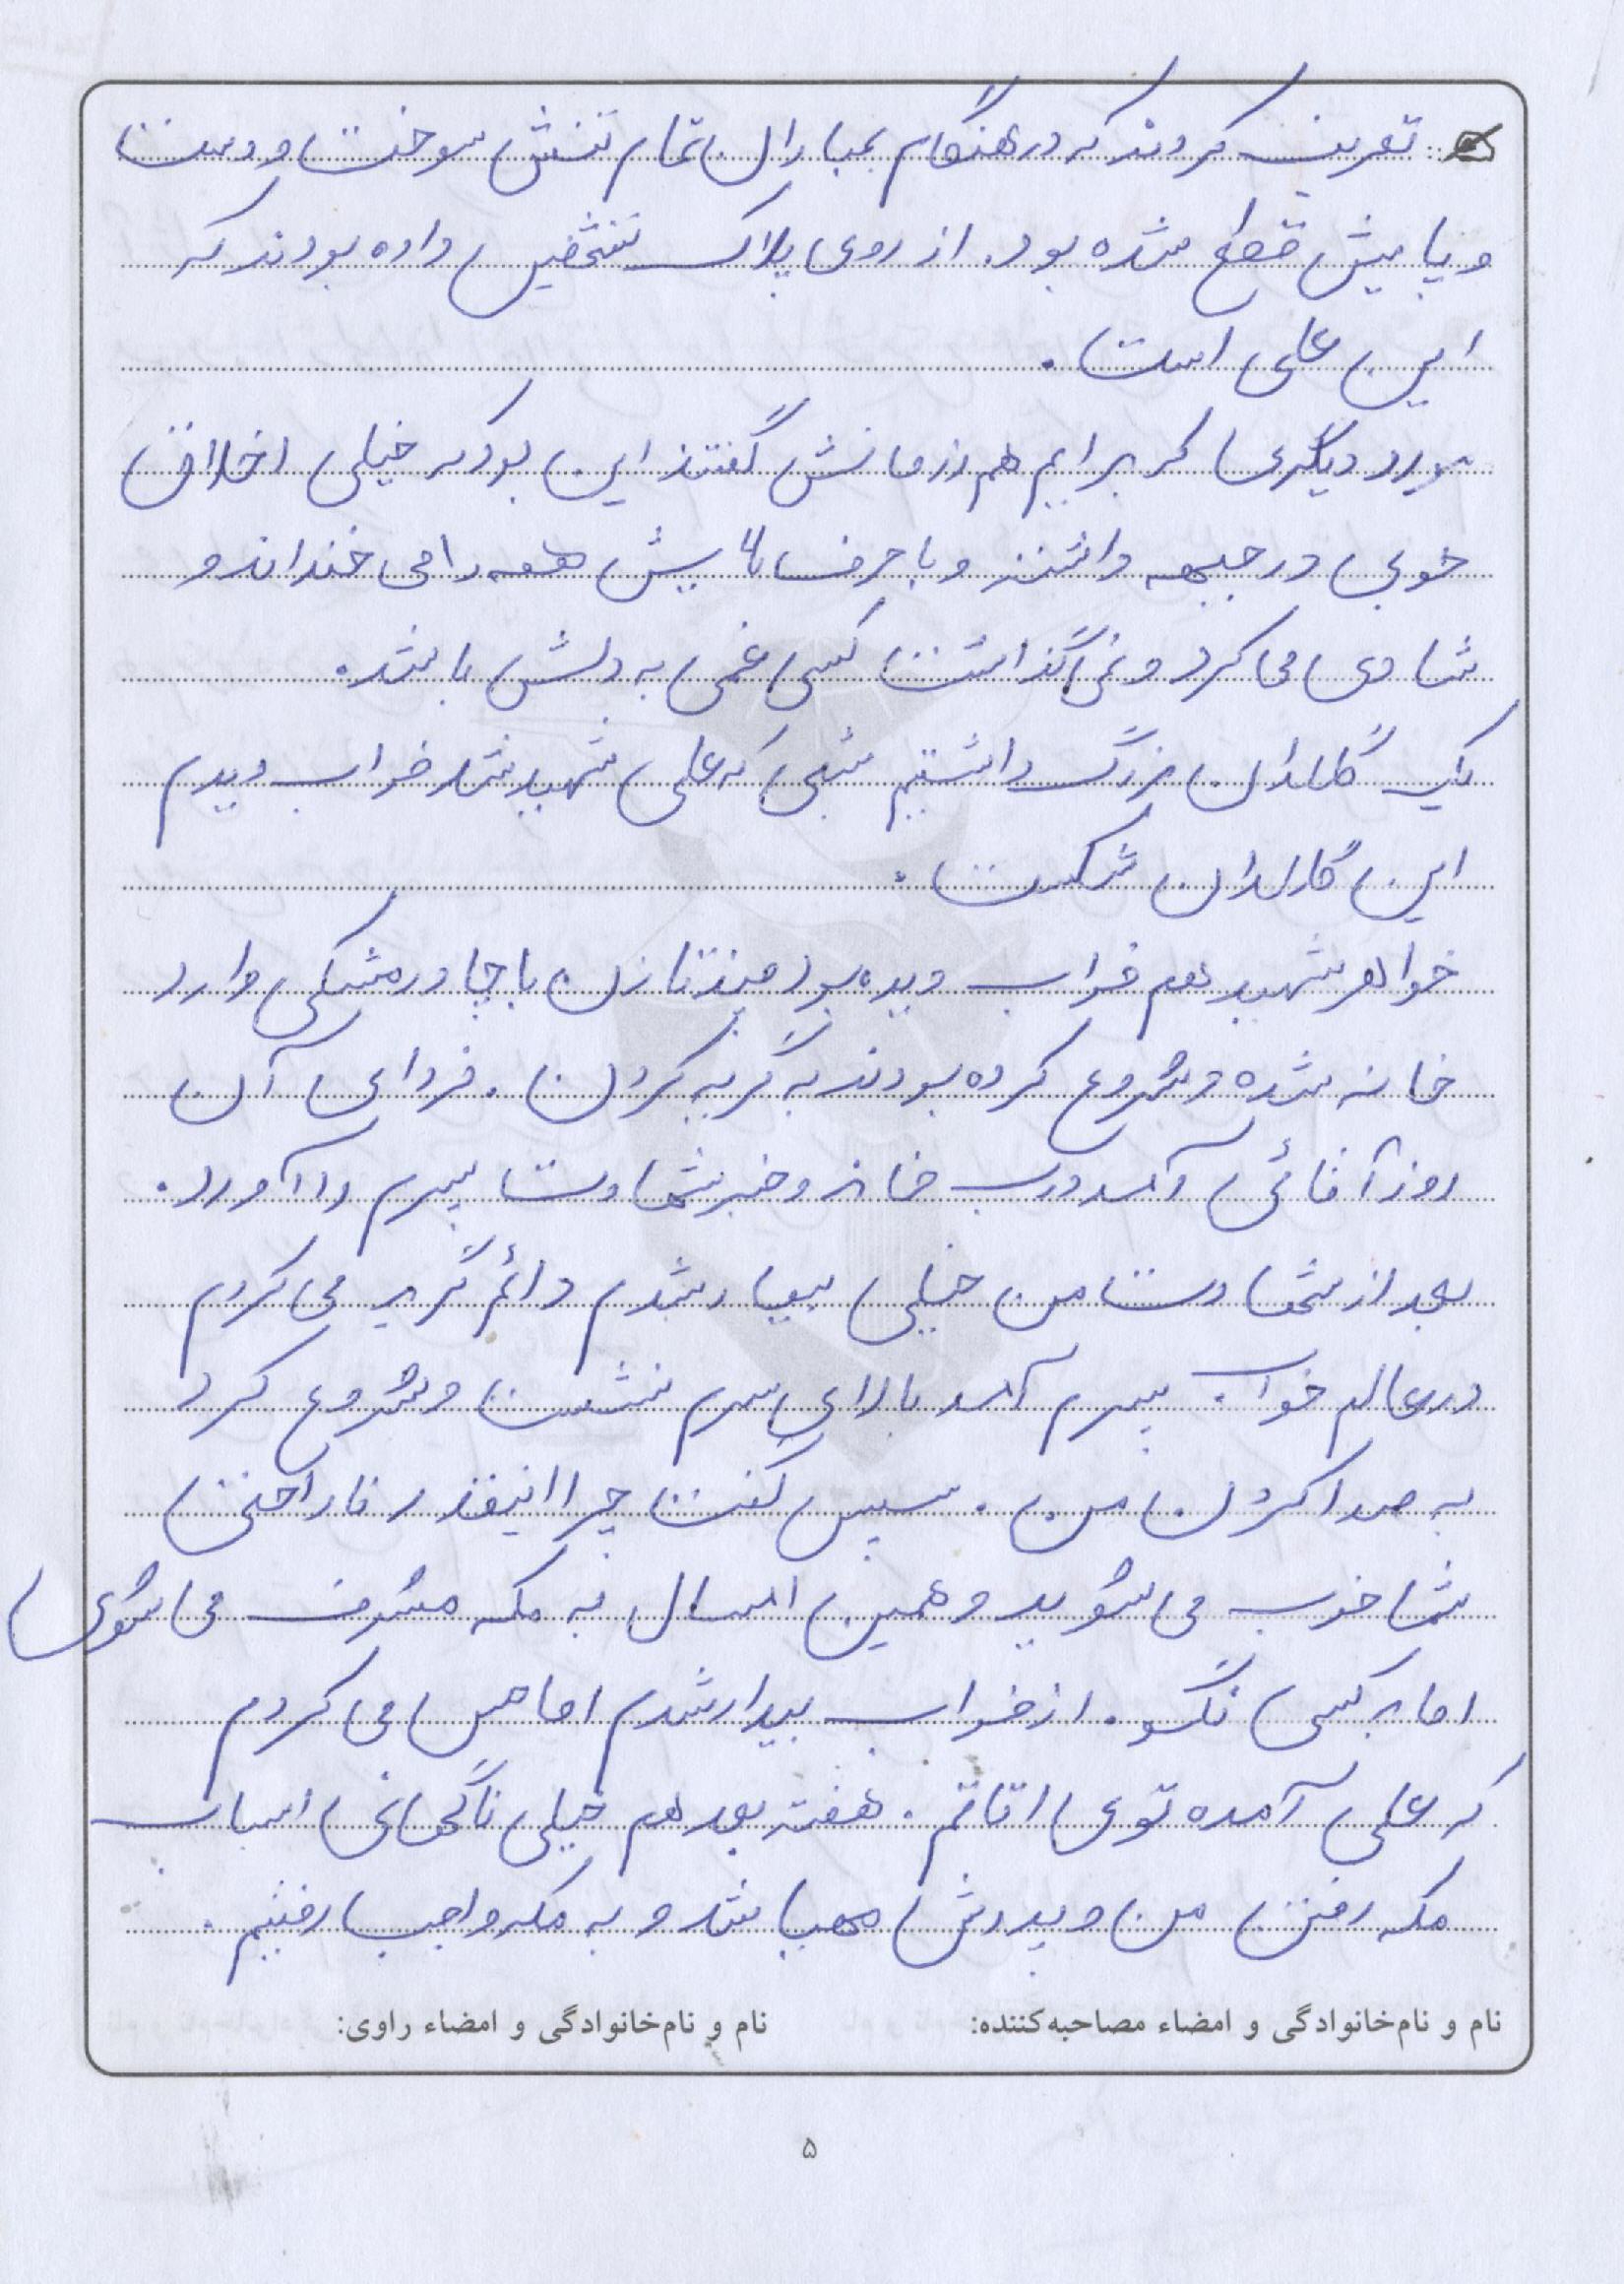 تعریف کردند که در هنگام بمباران تمام تنش سوخت و دست
و پایش قطع شده بود. از روی پلاک تشخیص داده بودند که
این علی است.
مورد دیگری که برایم هم رزمانش گفتند این بود که خیلی اخلاق
خوبی در جبهه داشته و با حرف هایش همه را می خنداند و
شادی می کرد و نمی گذاشت کسی غمی به دلش باشد.
یک گلدان بزرگ داشتیم شبی که علی شهید شد خواب دیدم
این گلدان شکست.
خواهر شهید هم خواب دیده بود چند تا زن با چادر مشکی وارد
خانه شده و شروع کرده بودند به گریه کردن. فردای آن
روز آقائی آمد درب خانه و خبر شهادت پسرم را آورد.
بعد از شهادت من خیلی بیمار شدم دائم گریه می کردم
در عالم خواب پسرم آمد بالای سرم نشست و شروع کرد
به صدا کردن من. سپس گفت چرا اینقدر ناراحتی
شما خوب می شوید و همین امسال به مکه مشرف می شوی
اما به کسی نگو. از خواب بیدار شدم اما حس می کردم
که علی آمده توی اتاقم. هفته بعد هم خیلی ناگهانی اسباب
مکه رفتن من و پدرش مهیا شد و به مکه واجب رفتیم.
نام و نام‌خانوادگی و امضاء مصاحبه‌کننده: نام و نام‌خانوادگی و امضاء راوی:
۵